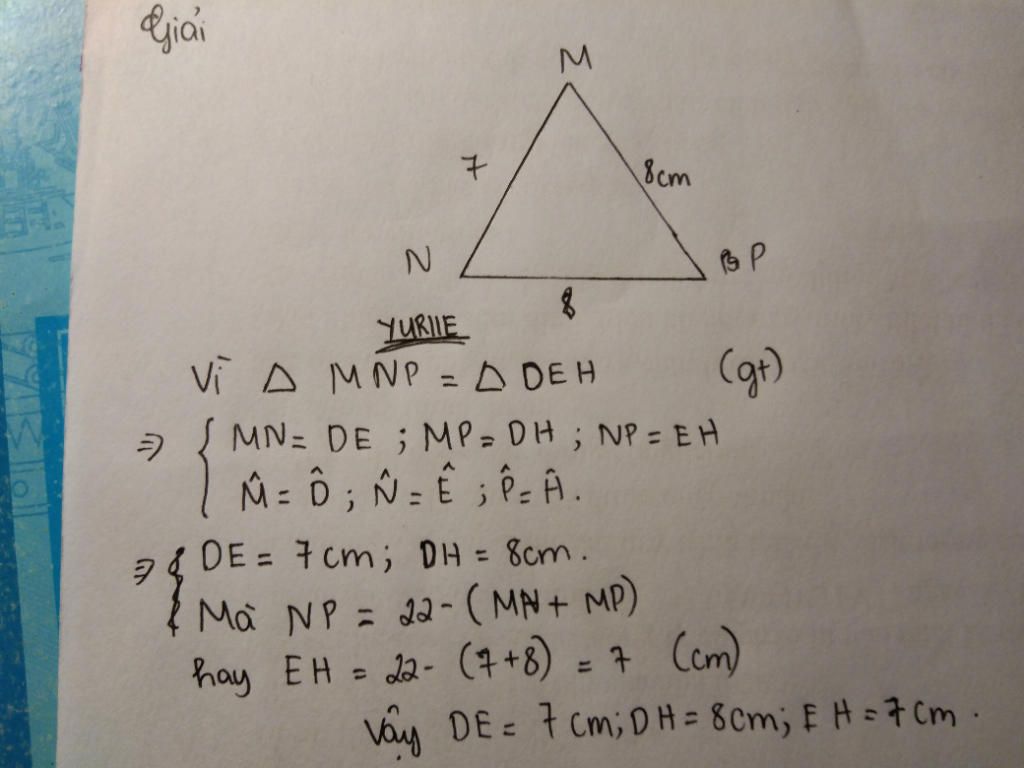 Giải
M
7
8cm
N
P
8
YURIIE
Vì △ MNP = △ DEH (gt)
⇒ { MN = DE ; MP = DH ; NP = EH
M̂ = D̂ ; N̂ = Ê ; P̂ = Ĥ.
⇒ { DE = 7cm ; DH = 8cm.
Mà NP = 22 - (MN + MP)
hay EH = 22 - (7+8) = 7 (cm)
Vậy DE = 7 cm ; DH = 8cm ; EH = 7cm .